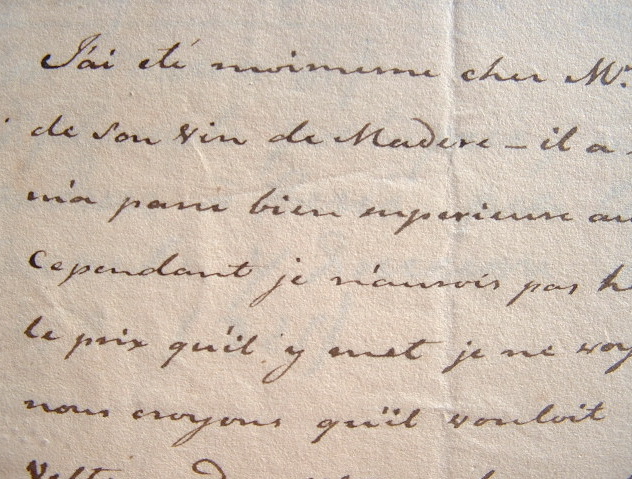 J'ai été moimeme cher Mr.
de son vin de Madere – il a
m'a paru bien superieure au
Cependant je n'aurois pas h
le prix qu'il y met je ne voy
nous croyons qu'il vouloit